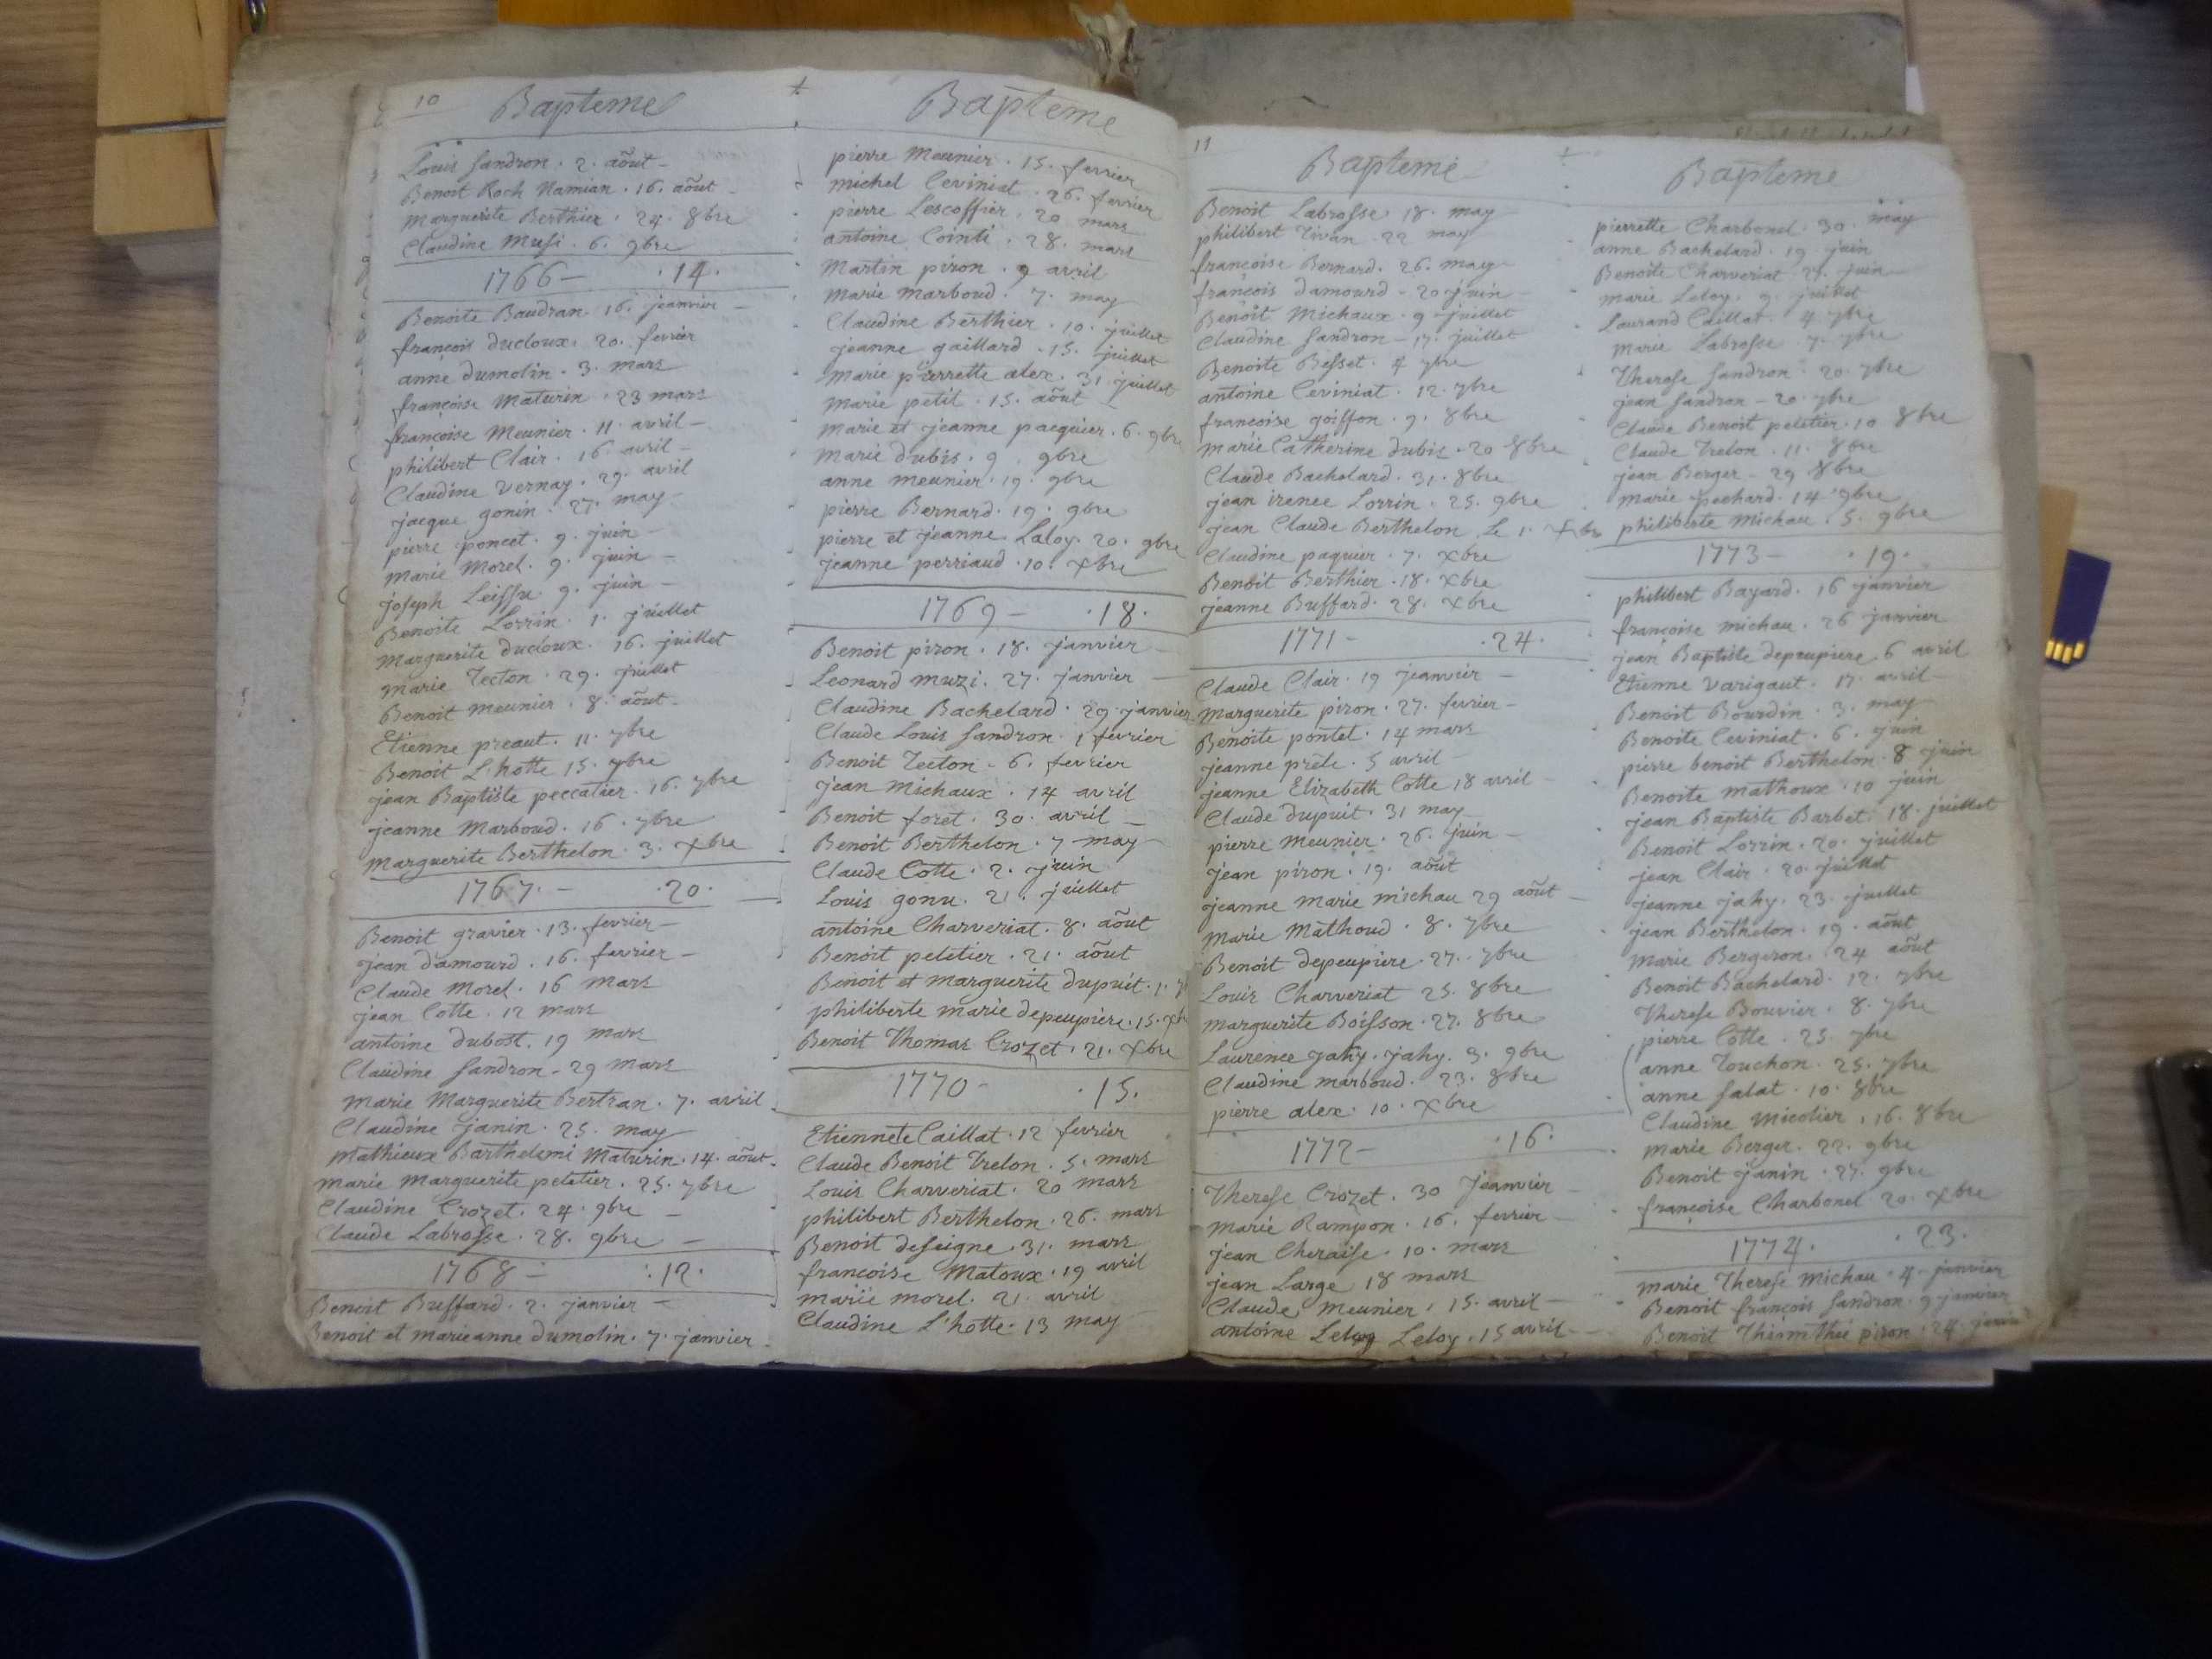 10
Bapteme
Louis Sandron . 2. aôut
Benoit Roch Namian . 16. aôut
Marguerite Berthier . 24. 8bre
Claudine Musi . 6. 9bre
1766 - . 14.
Benoite Baudran . 16. jeanvier
françois ducloux . 20. fevrier
anne dumolin . 3. mars
françoise Maturin . 23 mars
françoise Meunier . 11. avril
philibert Clair . 16. avril
Claudine Vernay . 29. avril
jacque gonin . 27. may
pierre poncet . 9. juin
marie Morel . 9. juin
joseph . 9. juin
Benoite Lorrin . 1. juillet
Marguerite ducloux . 16. juillet
Marie Tecton . 29. juillet
Benoit Meunier . 8. aôut
Etienne preaut . 11. 7bre
Benoit L'hotte 15. 7bre
jean Baptiste peccatier . 16. 7bre
jeanne Marboud . 16. 7bre
Marguerite Berthelon . 3. Xbre
1767. - . 20.
Benoit gravier . 13. fevrier
jean damourd . 16. fevrier
Claude Morel . 16 mars
jean Cotte . 12 mars
antoine dubost . 19 mars
Claudine Sandron - 29 mars
Marie Marguerite Bertran . 7. avril
Claudine janin . 25. may
Mathieux Barthelemi Maturin . 14. aôut
Marie Marguerite peletier . 25. 7bre
Claudine Crozet . 24. 9bre
Claude Labrosse . 28. 9bre
1768 - : 12.
Benoit Buffard . 2. janvier
Benoit et marieanne dumolin . 7. janvier
Bapteme
pierre Meunier . 15. fevrier
michel Ceviniat . 26. fevrier
pierre Lescoffier . 20 mars
antoine Cointi . 28. mars
Martin piron . 9 avril
Marie Marboud . 7. may
Claudine Berthier . 10. juillet
jeanne gaillard . 15. juillet
Marie pierrette alex . 31. juillet
Marie petit . 15. aôut
Marie et jeanne pacquier . 6. 9bre
Marie dubis . 9. 9bre
anne meunier . 19. 9bre
pierre Bernard . 19. 9bre
pierre et jeanne Laloy . 20. 9bre
jeanne perriaud . 10. Xbre
1769 - . 18.
Benoit piron . 18. janvier
Leonard muzi . 27. janvier
Claudine Bachelard . 29. janvier
Claude Louis Sandron . 1 fevrier
Benoit Tecton . 6. fevrier
jean Michaux . 14 avril
Benoit foret . 30. avril
Benoit Berthelon . 7 may
Claude Cotte . 2. juin
Louis gonu . 21. juillet
antoine Charveriat . 8. aôut
Benoit peletier . 21. aôut
Benoit et Marguerite dupuit . 1.
philiberte marie depeupiere . 15. Xb
Benoit Thomas Crozet . 21. Xbre
1770 - . 15.
Etiennete Caillat . 12 fevrier
Claude Benoit Trelon . 5. mars
Louis Charveriat . 20 mars
philibert Berthelon . 26. mars
Benoit deseigne . 31. mars
francoise Matoux . 19 avril
marie morel . 21. avril
Claudine L'hotte . 13 may
11
Bapteme
Benoit Labrosse 18. may
philibert Tivan . 22 may
françoise Bernard . 26. may
françois damourd - 20 juin
Benoit Michaux . 9. juillet
Claudine Sandron - 17. juillet
Benoite Besset . 4 7bre
antoine Ceviniat . 12. 7bre
francoise goiffon . 9. 8bre
marie Catherine dubis . 20 8bre
Claude Bachelard . 31. 8bre
jean irenee Lorrin . 25. 9bre
jean Claude Berthelon le 1. Xbr
Claudine paquier . 7. Xbre
Benoit Berthier . 18. Xbre
jeanne Buffard . 28. Xbre
1771 - . 24.
Claude Clair . 19 jeanvier
Marguerite piron . 27. fevrier
Benoite pontet . 14 mars
jeanne prele . 5 avril
jeanne Elizabeth Cotte 18 avril
Claude dupuit . 31 may
pierre Meunier . 26. juin
jean piron . 19. aôut
jeanne marie michau 29 aôut
Marie Mathoud . 8. 7bre
Benoit depeupiere . 27. 7bre
Louis Charveriat 25. 8bre
Marguerite Boisson . 27. 8bre
Laurence Jahy . jahy . 3. 9bre
Claudine marboud . 23. 8bre
pierre alex . 10. Xbre
1772 - . 16.
Therese Crozet . 30 Jeanvier
Marie Rampon . 16. fevrier
jean Cheraise . 10. mars
jean Large 18 mars
Claude Meunier . 15. avril
antoine Leloy . 15 avril
Bapteme
pierrette Charbonel . 30. may
anne Bachelard . 19 juin
Benoite Charveriat . 27. juin
marie Leloy . 9. juillet
Laurand Caillat . 4 7bre
Marie Labrosse . 7. 7bre
Therese Sandron . 20. 7bre
jean Sandron - 20. 7bre
Claude Benoit peletier . 10 8bre
Claude Trelon . 11. 8bre
jean Berger - 29 8bre
Marie pechard . 14 9bre
philiberte Michau . 5. 9bre
1773 - . 19.
philibert Bayard . 16 janvier
françoise michau . 26 janvier
jean Baptiste depeupiere . 6 avril
Etienne Varigaut . 17. avril
Benoit Bourdin . 3. may
Benoite Ceviniat . 6. juin
pierre benoit Berthelon . 8 juin
Benoite Mathoux . 10 juin
jean Baptiste Barbet . 18. juillet
Benoit Lorrin . 20. juillet
jean Clair . 20. juillet
jeanne jahy . 23. juillet
jean Berthelon . 19. aôut
Marie Bergeron . 24 aôut
Benoit Bachelard . 12. 7bre
Therese Bouvier . 8. 7bre
pierre Cotte . 25. 7bre
anne Touchon . 25. 7bre
anne Salat . 10. 8bre
Claudine Micolier . 16. 8bre
Marie Berger . 22. 9bre
Benoit janin . 27. 9bre
françoise Charbonel 20. Xbre
1774. . 23.
marie Therese Michau . 4. janvier
Benoit françois Sandron . 9 janvier
Benoit piron . 24